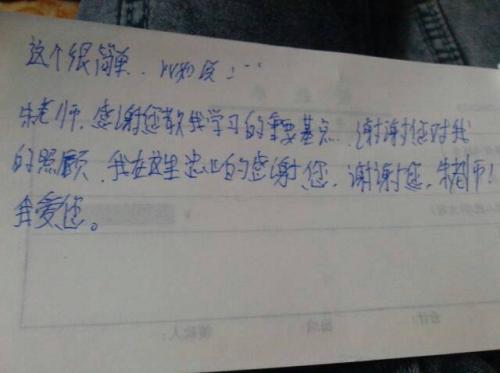 这个很简单、比如说:……
朱老师,感谢您教我学习的重要基点,谢谢您对我
的照顾,我在这里忠心的感谢您,谢谢您,朱老师!
爱您。